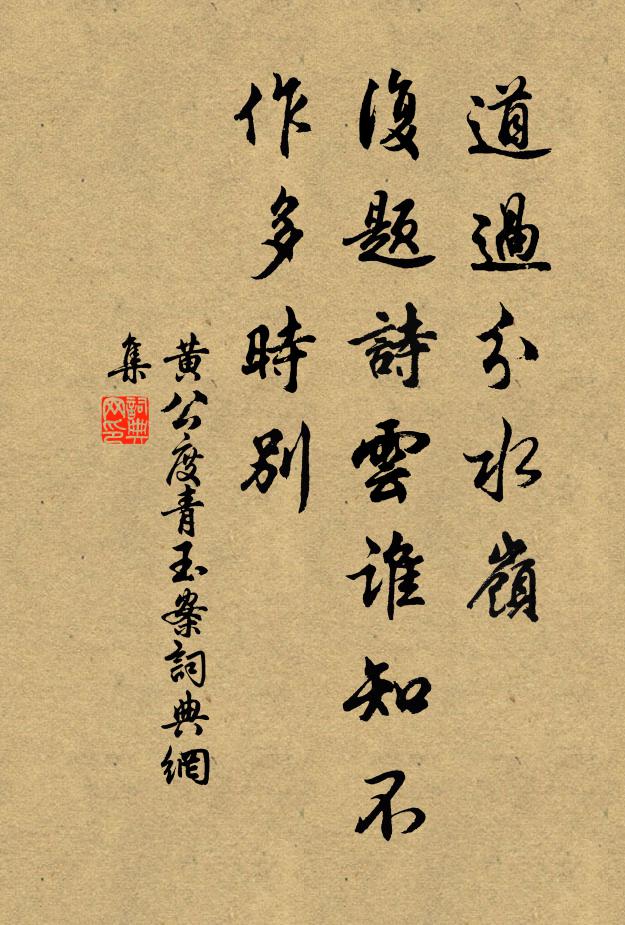 道過分水嶺
復題詩雲誰知不
作多時別
黄公度青玉案詞典網
集
詞典网印